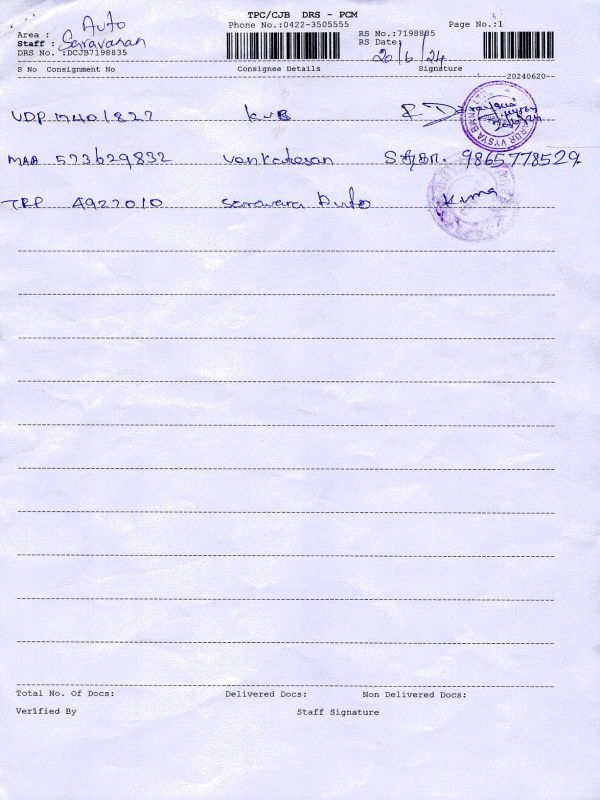 TPC/CJB DRS - PCM
Phone No.:0422-3505555
Page No.:1
Area : Auto
Staff : Saravanan
DRS No. :DCJB7198835
RS No.:7198835
RS Date: 20/6/24
S No Consignment No Consignee Details Signature
20240620
UDP 17401827 KVB
KARUR VYSYA BANK LTD
MAA 573629832 Venkatesan 9865778529
TRP 4927010 Saravana Auto Kuma
Total No. Of Docs: Delivered Docs: Non Delivered Docs:
Verified By Staff Signature